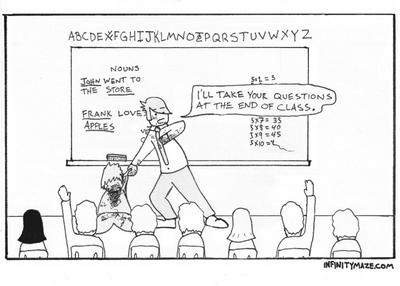 ABCDEXFGHIJKLMNOZPQRSTUVWXYZ
NOUNS
JOHN WENT TO
THE STORE
FRANK LOVE
APPLES
5x1 = 5
I'LL TAKE YOUR QUESTIONS
AT THE END OF CLASS.
5x7 = 35
5x8 = 40
5x9 = 45
5x10 =
INFINITYMAZE.COM